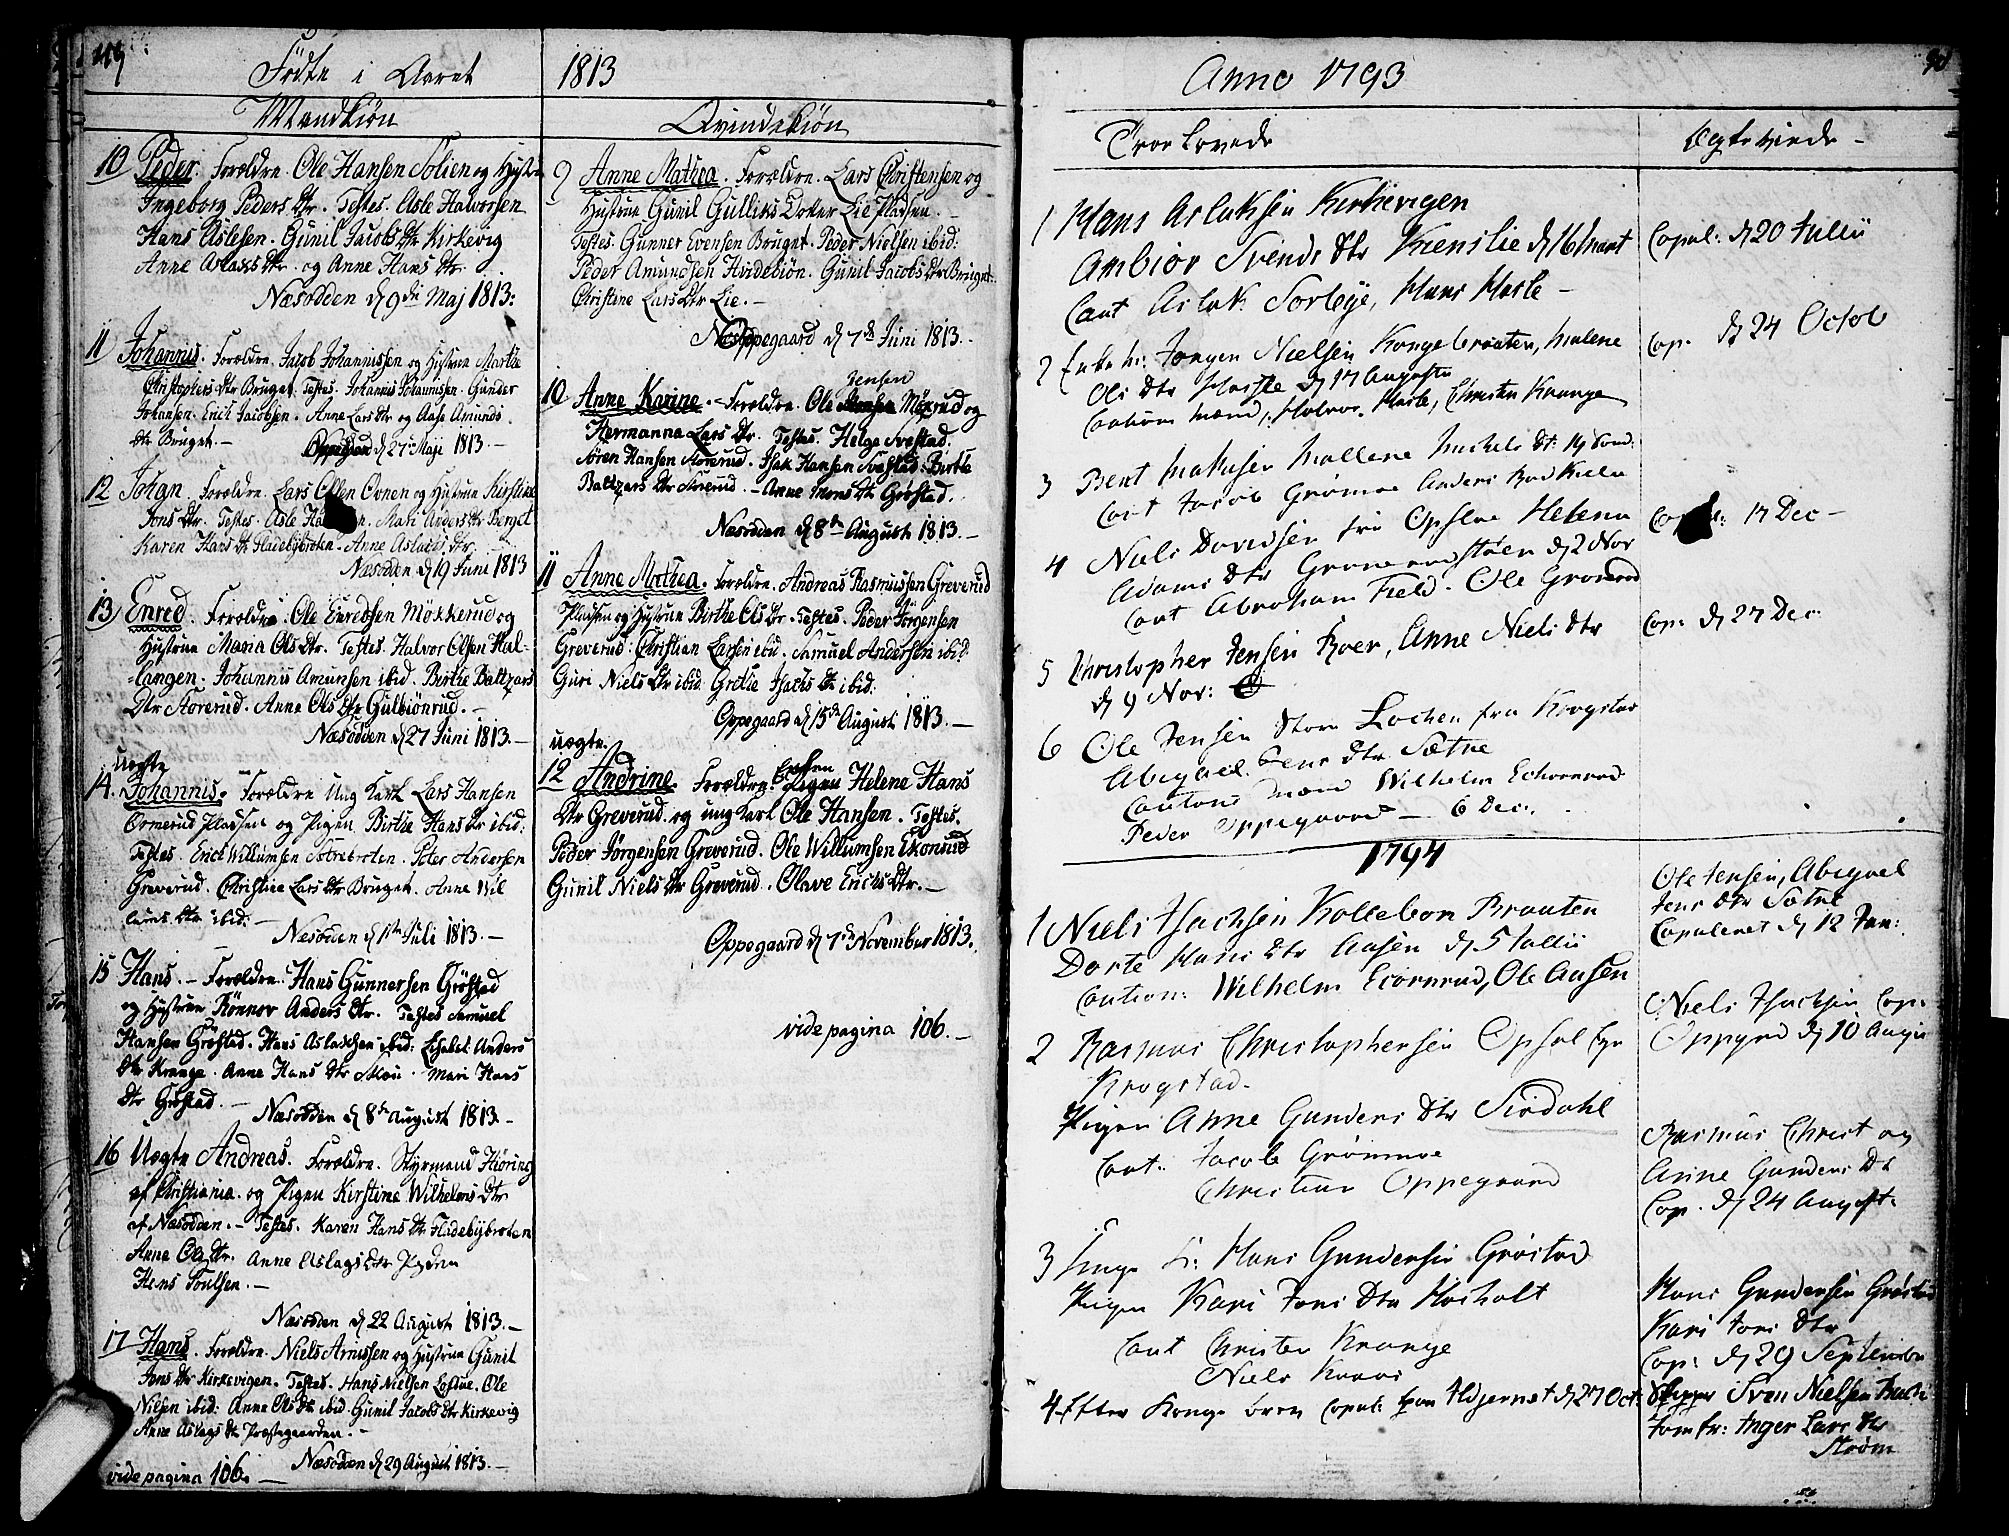 Födte i Aaret 1813
Mandkiön
10 Peder. Forældre. Ole Hansen Solien og Hustru
Ingeborg Peders Dtr. Testes. Asle Halvorsen
Hans Aslesen. Gunil Jacobs Dtr Kirkevig
Anne Aslaks Dtr. og Anne Hans Dtr.
Næsodden d 9de Maj 1813:
11 Johannis. Forældre. Jacob Johannissen og Hustrue Marthe
Christophers Dtr Bruget. Testes. Johannis Johannissen. Gunder
Johansen. Erich Jacobsen. Anne Lars Dtr og Aase Amunds
Dtr Bruget. - Oppegaard d 27de Maji 1813. -
12 Johan. Forældre. Lars Olsen Ovnen og Hustrue Kirstine
Jons Dtr. Testes. Asle. Mari Anders Dtr Berget
Karen Hans Dtr Fladebybroten. Anne Aslacks Dtr.
Næsodden d 19 Juni 1813
13 Enred. Forældre. Ole Enredsen Mökkerud og
Hustrue Maria Ols Dtr. Testes. Halvor Olsen Hal-
langen. Johannis Amunsen ibid. Birthe Baltzars
Dtr Storerud. Anne Ols Dtr Gulbiönrud. -
Næsodden d 27 Juni 1813. -
Uægte
14. Johannis. Forældre Ung Karl Lars Hansen
Ormerud Pladsen og Pigen Birthe Hans Dtr ibid:
Testes. Erich Willumsen. Peter Andersen
Greverud. Christine Lars Dtr Bruget. Anne Wil
lums Dtr ibid: -
Næsodden d 1ste Juli 1813. -
15 Hans. - Forældre. Hans Gunnersen Gröstad
og Hustrue Rönnov Anders Dtr. Testes Samuel
Hansen Gröstad. Hans Aslachsen ibid: Elisabet Anders
Dtr Krange. Anne Hans Dtr Mou. Mari Hans
Dtr Gröstad. -
Næsodden d 8de August 1813. -
16 Uægte Andreas. Forældre. Styrmand Hiöring
af Christiania. og Pigen Kirstine Wilhelms Dtr
af Næsodden. - Testes. Karen Hans Dtr Fladebybroten
Anne Ols Dtr. Anne Aslags Dtr
Hens Poulsen. -
Næsodden d 22 August 1813. -
17 Hans. Forældre. Niels Arnissen og Hustrue Gunil
Jons Dtr Kirkevigen. Testes. Hans Nielsen. Ole
Nilsen ibid: Anne Ols Dtr ibid. Gunil Jacobs Dtr Kirkevig
Anne Aslags Dtr Præstegaarden. -
Næsodden d 29 August 1813. -
vide pagina 106. -
Qvindekiön
9 Anne Mathea. Forældre. Lars Christensen og
Hustrue Gunil Gulliks Dotter Lie Pladsen. -
Testes. Gunner Evensen Bruget. Peder Nielsen ibid:
Peder Amundsen Hvidebiön. Gunil Jacobs Dtr Bruget.
Christine Lars Dtr Lie. -
Oppegaard d 7de Juni 1813. -
Jensen
10 Anne Karine. - Forældre. Ole Mörrud og
Hermanna Lars Dtr. Testes. Helge Svestad.
Sören Hansen Storerud. Isak Hansen Svestad. Birthe
Baltzars Dtr Storerud. - Anne Mons Dtr Gröstad.
Næsodden d 8de August 1813. -
11 Anne Mathea. Forældre. Andreas Rasmussen Greverud
Pladsen og Hustrue Birthe Ols Dtr. Testes. Peder Jörgensen
Greverud. Christian Larsen ibid. Samuel Andersen ibid
Guri Niels Dtr ibid. Grethe Isachs Dtr ibid:
Oppegaard d 15de August 1813. -
uægte.
12 Andrine. Forældre. Pigen Helene Hans
Dtr Greverud. og ung Karl Ole Hansen. Testes.
Peder Jörgensen Greverud. Ole Willumsen Ekonrud
Gunil Niels Dtr Greverud. Olave Erichs Dtr. -
Oppegaard d 7de November 1813.
vide pagina 106. -
90
Anno 1793
Troe Lovede
Ægte Viede -
1 Hans Aslaksen Kirkevigen
Anbior Svends Dtr Kienslie d 16 Mart
Caut Aslak Sorleye, Hans Hasle -
Copul: d 20 Julii
2 Enke m: Jorgen Nielsen Kongebraaten, Malene
Ols Dtr Hasle d 17 Augusti
Cautions mænd: Halvor Hasle, Christen Krange
Cop. d 24 Octob
3 Bent Mallene Michels Dt:
Caut Jacob Grømoe Anders
4 Niels Davidsen fra Opsloe Helena
Adams Dtr d 2 Nov
Caut Abraham Field. Ole Gronerud
17 Dec -
5 Christopher Jensen Roer, Anne Niels Dtr
d 9 Nov:
Cop: d 27 Dec
6 Ole Jensen Store Lochen fra Krogstad
Abigael Jens Dtr Sætre
Cautions Mænd Wilhelm Echornrud
Peder Oppegaard - 6 Dec:
1794
Ole Jensen, Abigael
Jens Dtr Sætre
Copuleret d 12 Jan:
1 Niels Isachsen Kollebon Braaten
Dorte Hans Dtr Aasen d 5 Julii
Caution: Wilhelm Eiornrud, Ole Aasen
Niels Isachsen Cop:
Oppegrd d 10 Augu
2 Rasmus Christophersen Opsal
Krogstad.
Pigen Anne Gunders Dtr Siødahl
Caut: Jacob Grømmoe
Christian Oppegaard
Rasmus Christ og
Anne Gunders Dt
Cop. d 24 August.
3 Unge K: Hans Gundersen Grøstad
Pigen Kari Jons Dtr Hosholt
Caut Christen Krange
Niels Kraas
Hans Gundersen Grøstad
Kari Jons Dtr
Cop: d 29 Septembr
4 Efter Konge brev copul: paa Ildjernet d 27 Oct. Skipper Sven Nielsen
Jomfr: Inger Lars Dtr
Strøm